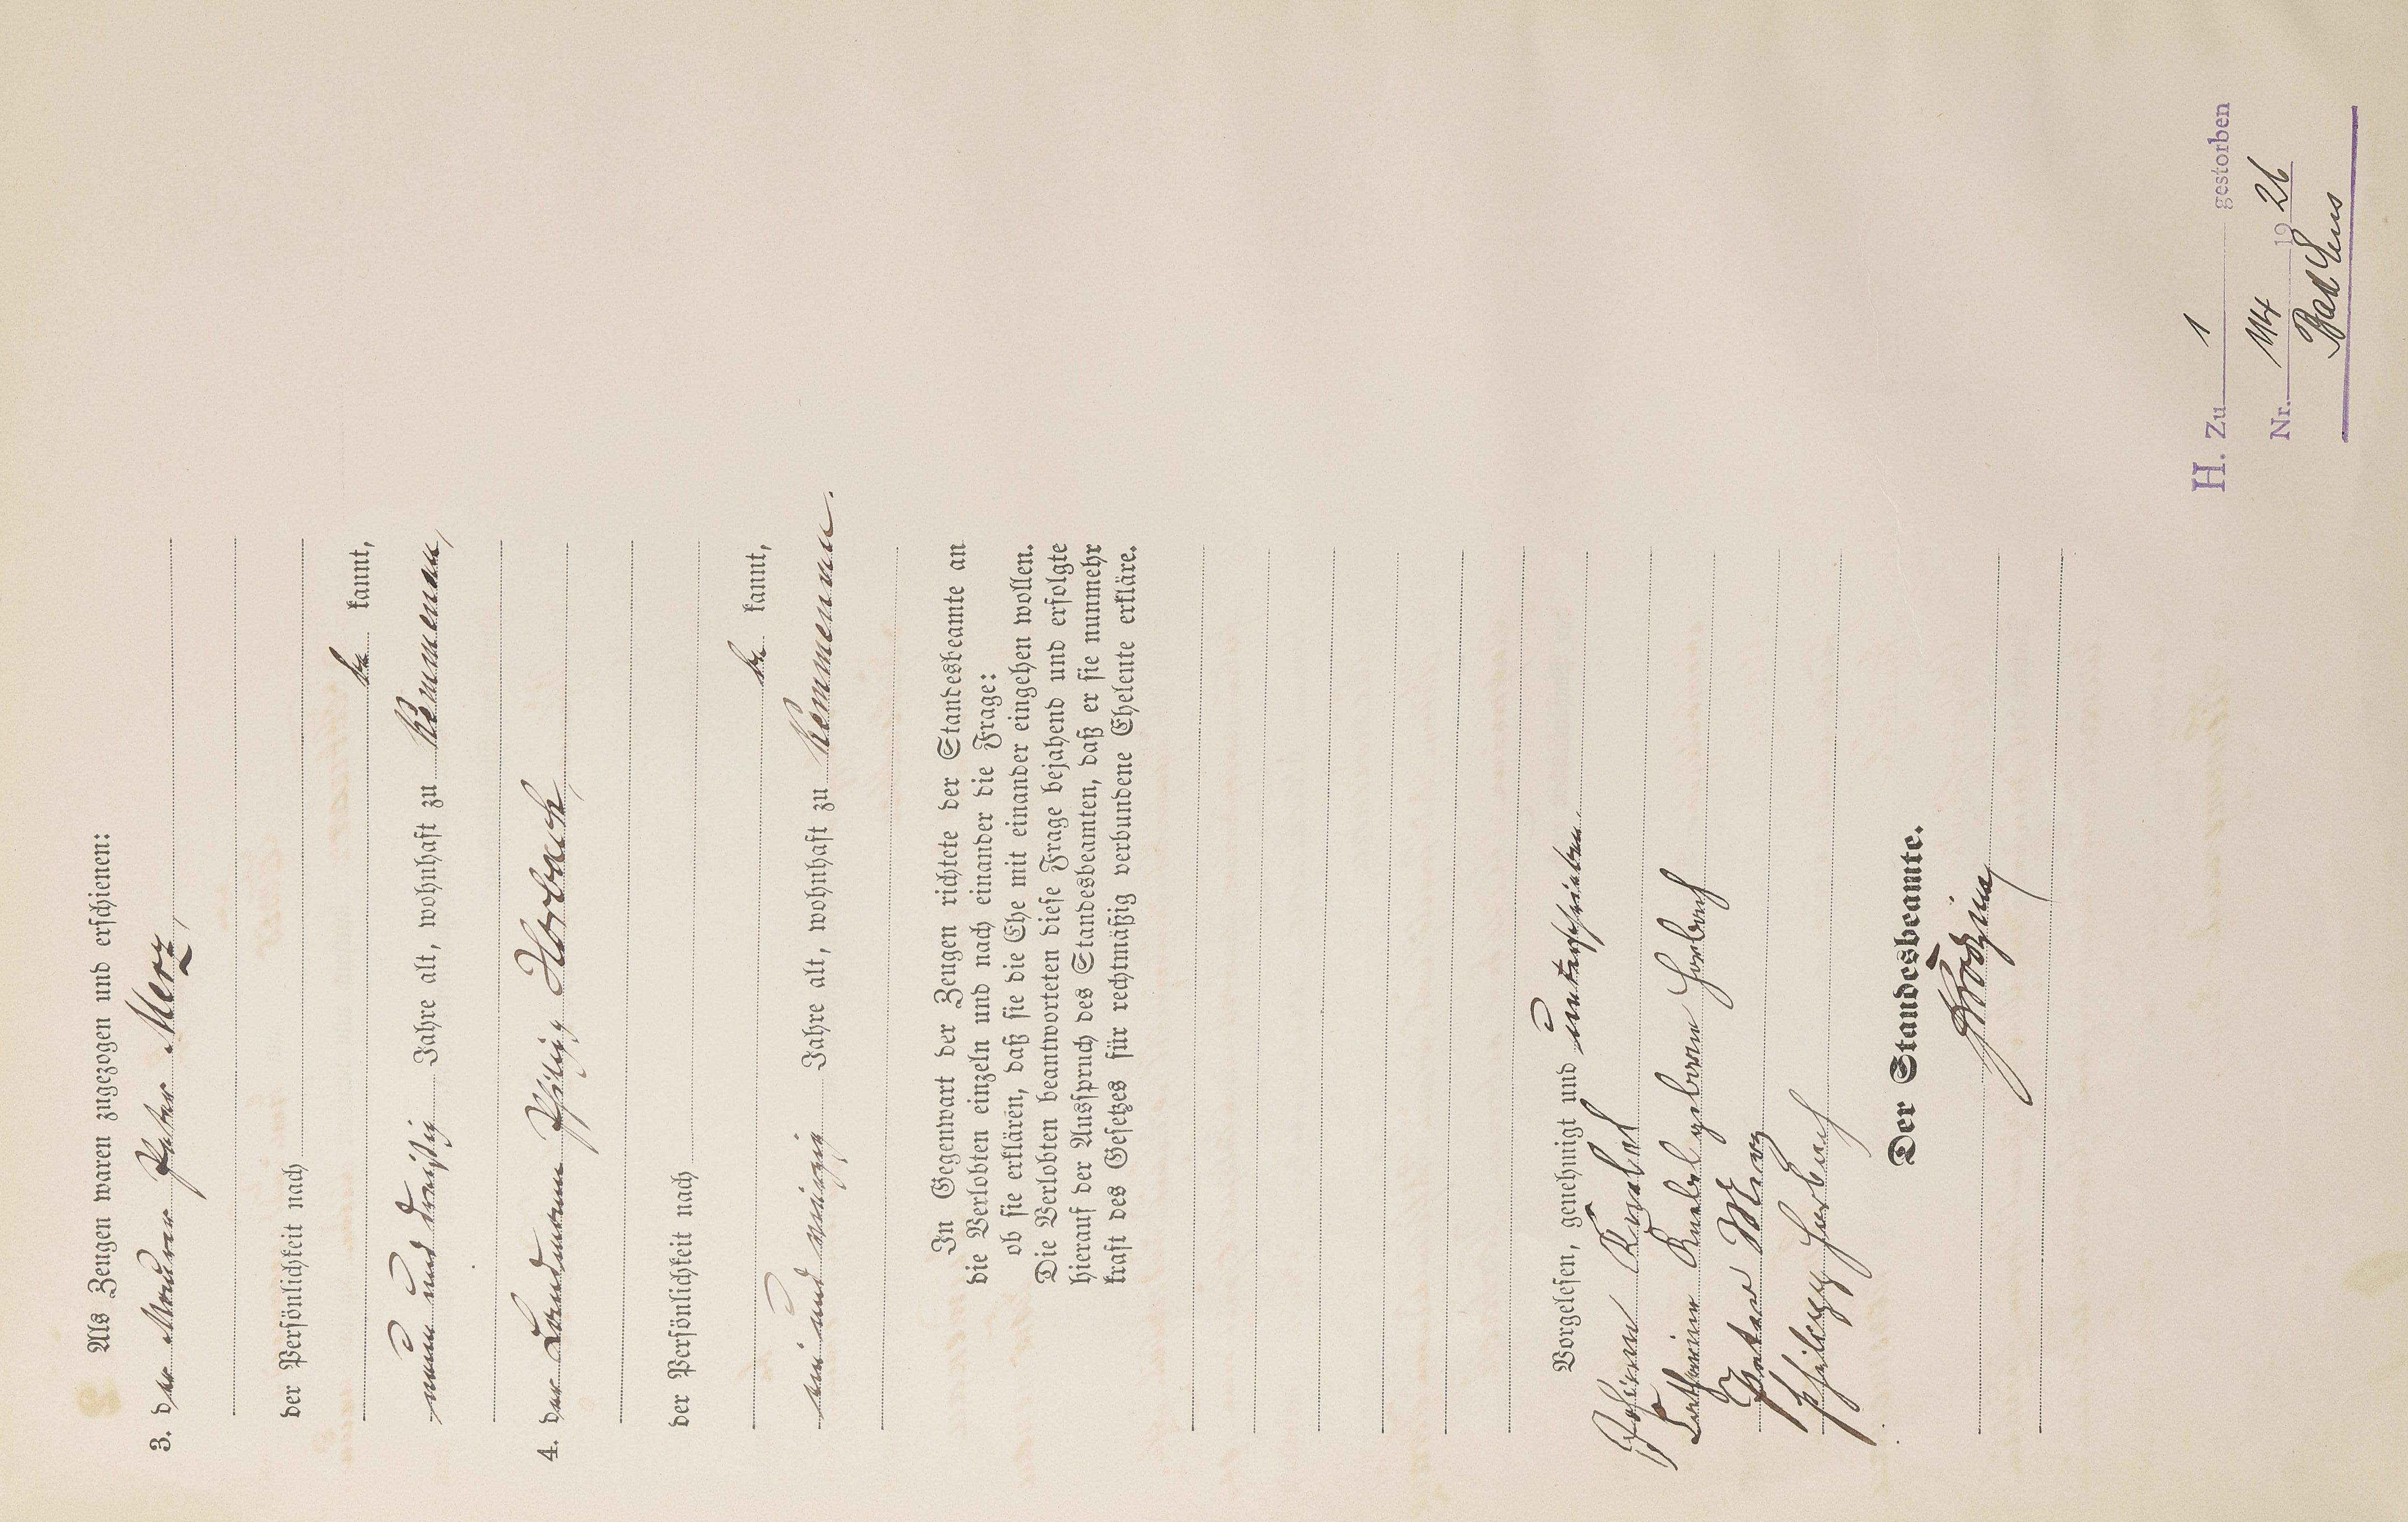 Als Zeugen waren zugezogen und erschienen:
3. der Maurer Peter Merz,
der Persönlichkeit nach
be kannt,
neun und dreißig Jahre alt, wohnhaft zu Kemmenau,
4. der Landmann Philipp Horbach,
der Persönlichkeit nach
be kannt,
ein und vierzig Jahre alt, wohnhaft zu Kemmenau.
In Gegenwart der Zeugen richtete der Standesbeamte an
die Verlobten einzeln und nach einander die Frage:
ob sie erklären, daß sie die Ehe mit einander eingehen wollen.
Die Verlobten beantworteten diese Frage bejahend und erfolgte
hierauf der Ausspruch des Standesbeamten, daß er sie nunmehr
kraft des Gesetzes für rechtmäßig verbundene Eheleute erkläre.
Vorgelesen, genehmigt und unterschrieben
geboren Horbach
Peter Merz
Philipp Horbach
Der Standesbeamte.
H. Zu 1 gestorben
Nr. 1926
Bad Ems